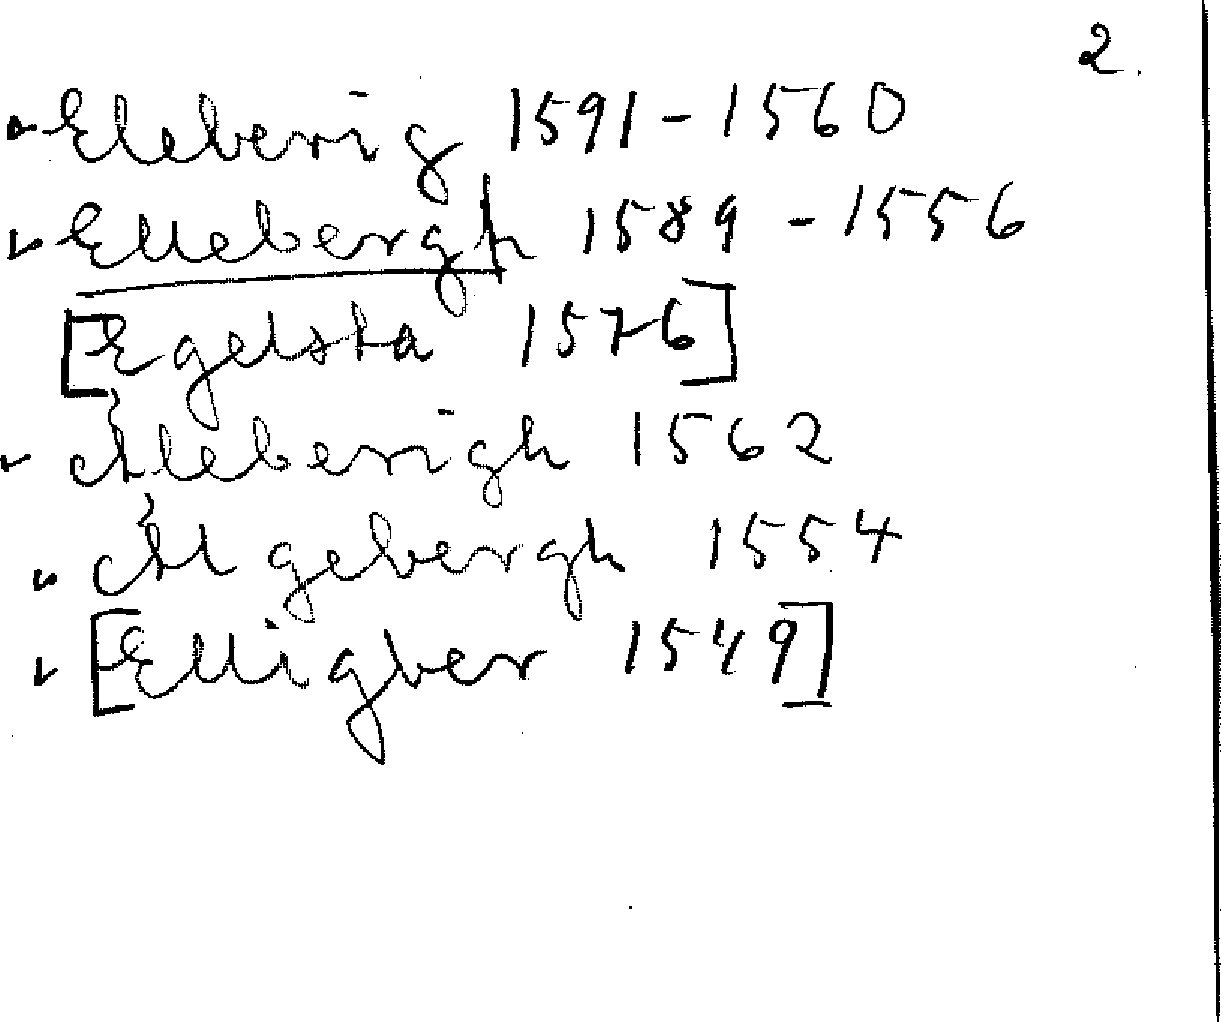 2.
Eleberig 1591-1560
Ellebergh 1589-1556
[Egelsta 1576]
Äleberigh 1562
Älgebergh 1554
[Elligber 1549]